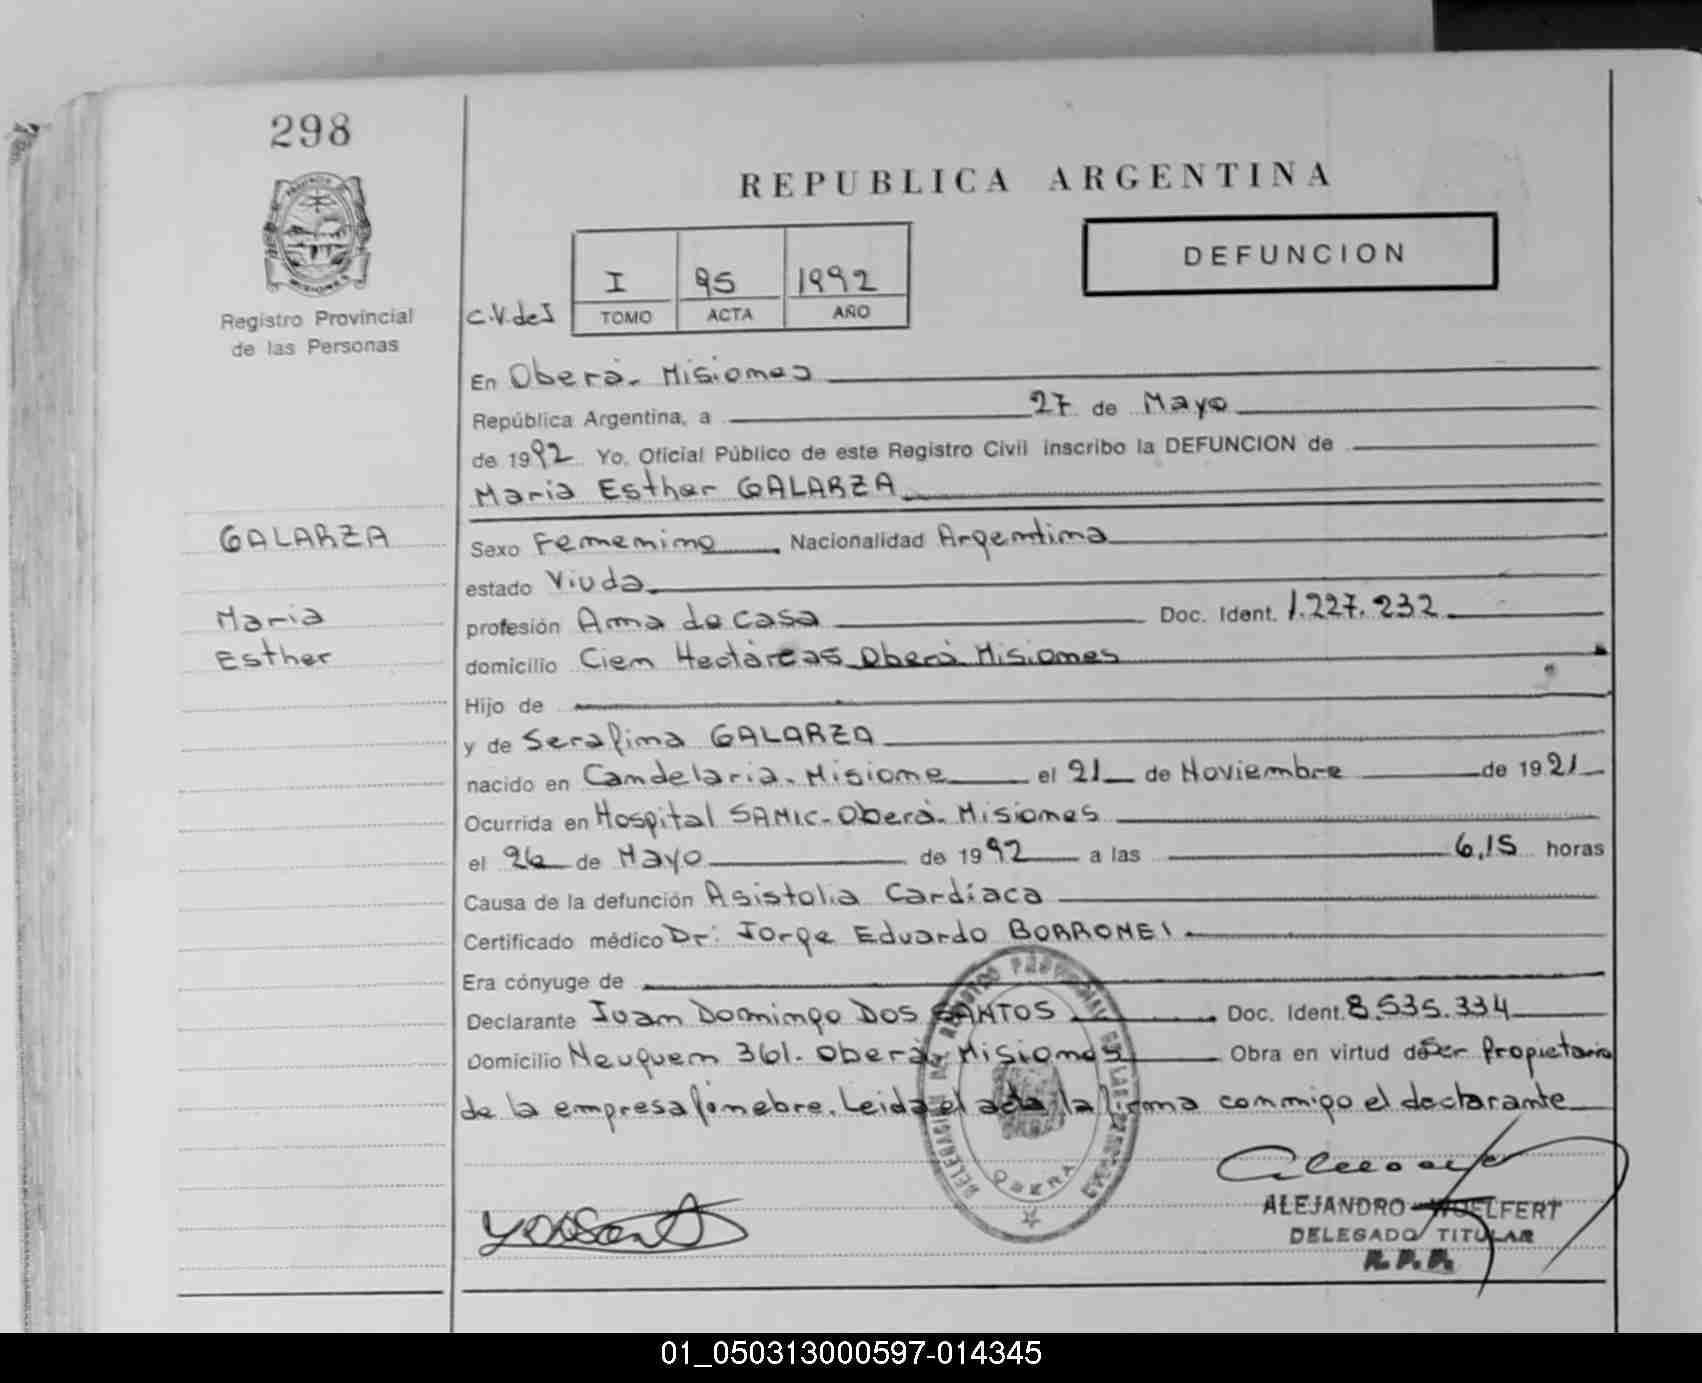 298
REPUBLICA ARGENTINA
DEFUNCION
I 95 1992
C.V.deI TOMO ACTA AÑO
Registro Provincial
de las Personas
En Oberá. Misiones
República Argentina, a 27 de Mayo
de 1992 Yo, Oficial Público de este Registro Civil inscribo la DEFUNCION de
Maria Esther GALARZA
GALARZA
Sexo Femenino Nacionalidad Argentina
estado Viuda
Maria
profesión Ama de casa Doc. Ident. 1.227.232
Esther
domicilio Cien Hectáreas Oberá Misiones
Hijo de
y de Serafina GALARZA
nacido en Candelaria. Misione el 21 de Noviembre de 1921
Ocurrida en Hospital SAMIC. Oberá. Misiones
el 26 de Mayo de 1992 a las 6,15 horas
Causa de la defunción Asistolia Cardíaca
Certificado médico Dr: Jorge Eduardo BORROMEI
Era cónyuge de
Declarante Juan Domingo DOS SANTOS Doc. Ident. 8.535.334
Domicilio Neuquen 361. Oberá, Misiones Obra en virtud de Ser propietario
de la empresa fúnebre. Leida el acta la firma conmigo el declarante
DELEGACION DEL REGISTRO PROVINCIAL DE LAS PERSONAS
OBERA
ALEJANDRO WOELFERT
DELEGADO TITULAR
R. P. P.
01_050313000597-014345